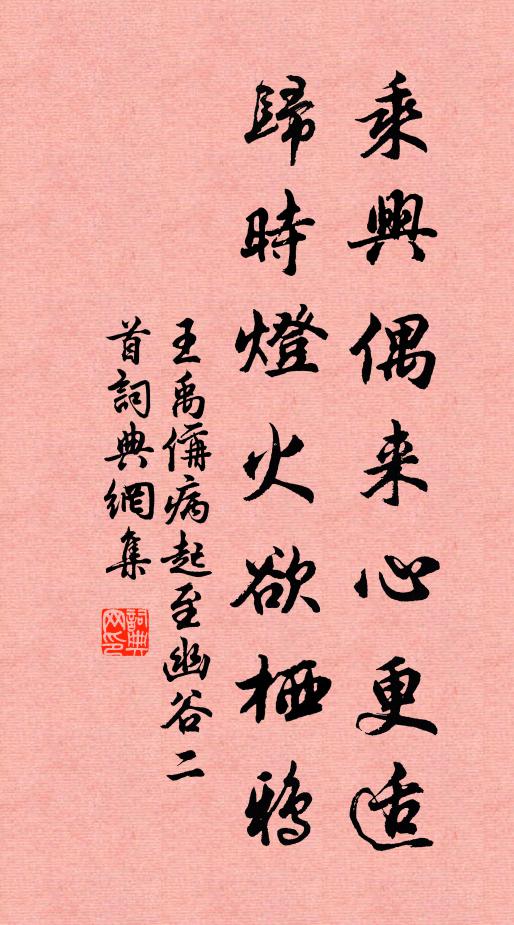 乘興偶来心更适
歸時燈火欲栖鴉
王禹偁病起至幽谷二
首詞典網集
詞典
网印